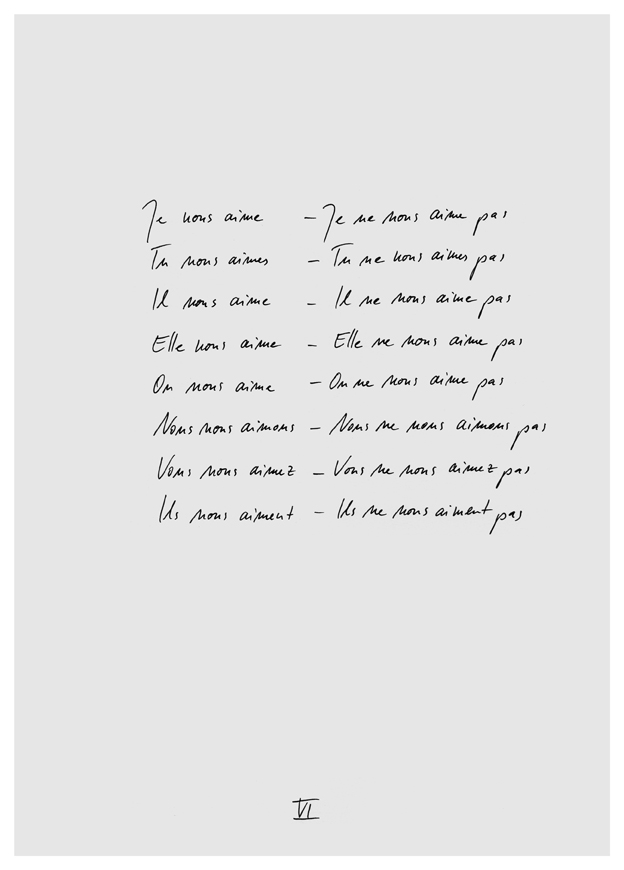 Je nous aime – Je ne nous aime pas
Tu nous aimes – Tu ne nous aimes pas
Il nous aime – Il ne nous aime pas
Elle nous aime – Elle ne nous aime pas
On nous aime – On ne nous aime pas
Nous nous aimons – Nous ne nous aimons pas
Vous nous aimez – Vous ne nous aimez pas
Ils nous aiment – Ils ne nous aiment pas
VI